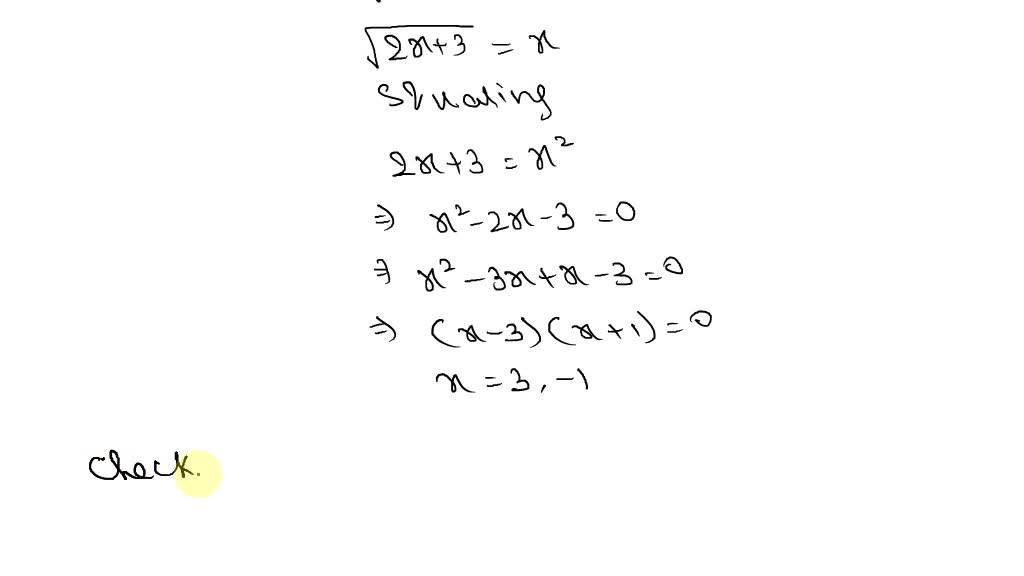 √(2x+3) = x
Squaring
2x+3 = x²
⇒ x²-2x-3 = 0
⇒ x²-3x+x-3 = 0
⇒ (x-3)(x+1) = 0
x = 3, -1
Check.